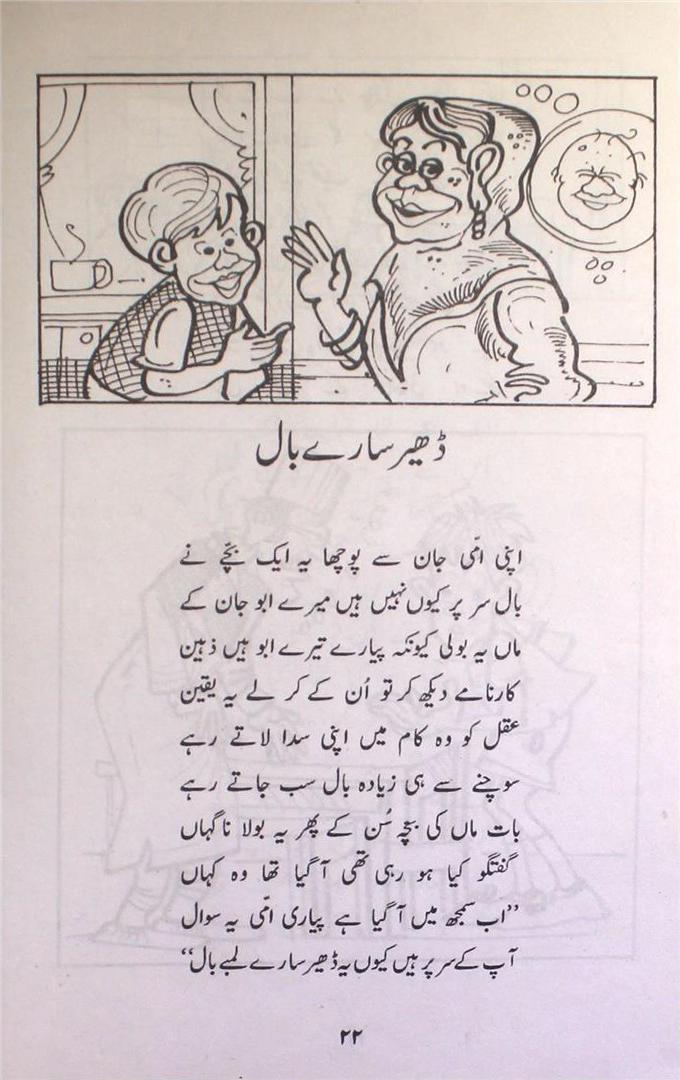 ڈھیر سارے بال
اپنی امّی جان سے پوچھا یہ ایک بچّے نے
بال سر پر کیوں نہیں ہیں میرے ابو جان کے
ماں یہ بولی کیونکہ پیارے تیرے ابو ہیں ذہین
کارنامے دیکھ کر تو اُن کے کر لے یہ یقین
عقل کو وہ کام میں اپنی سدا لاتے رہے
سوچنے سے ہی زیادہ بال سب جاتے رہے
بات ماں کی بچہ سُن کے پھر یہ بولا ناگہاں
گفتگو کیا ہو رہی تھی آ گیا تھا وہ کہاں
”اب سمجھ میں آ گیا ہے پیاری امّی یہ سوال
آپ کے سر پر ہیں کیوں یہ ڈھیر سارے لمبے بال“
۲۲